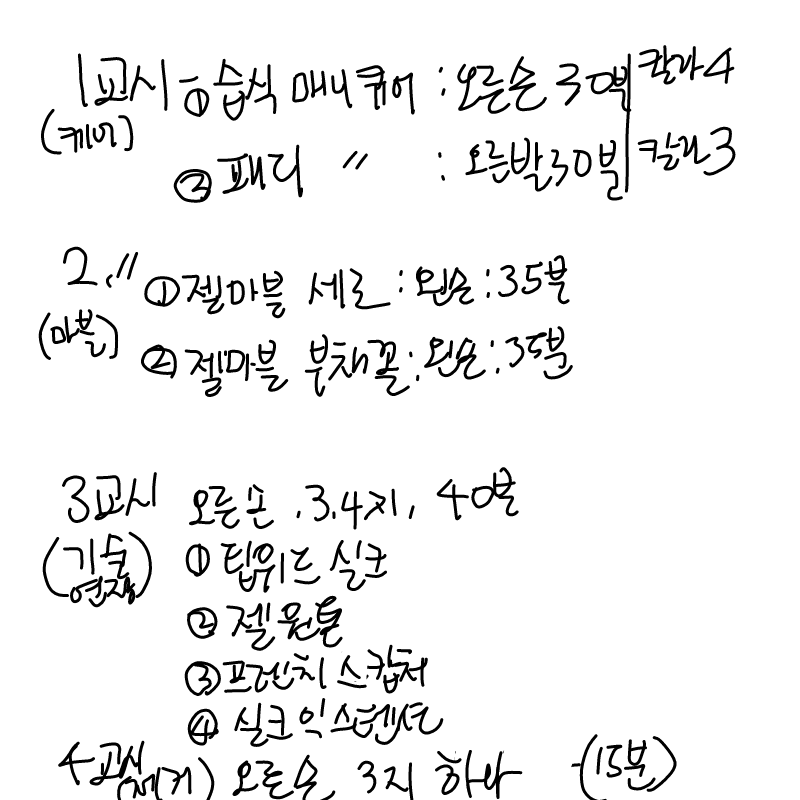 1교시 ① 습식 매니큐어 : 오른손 30분 | 칼라 4
(케어)
② 패디 〃 : 오른발 30분 | 칼라 3
2.〃 ① 젤마블 세로 : 왼손 : 35분
(마블)
② 젤마블 부채꼴 : 왼손 : 35분
3교시 오른손 .3.4지, 40분
(기술 ① 팁위드 실크
연장)
② 젤 원톤
③ 프렌치 스캅쳐
④ 실크 익스텐션
4교시 (제거) 오른손 3지 하나 -(15분)